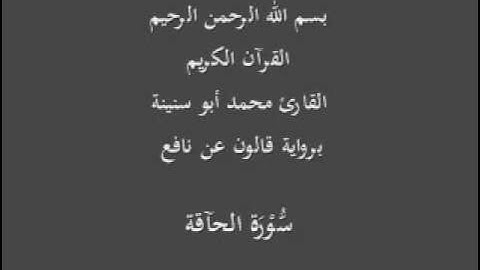 بسم الله الرحمن الرحيم
القرآن الكريم
القارئ محمد أبو سنينة
برواية قالون عن نافع
سُّوْرَة الحآقة